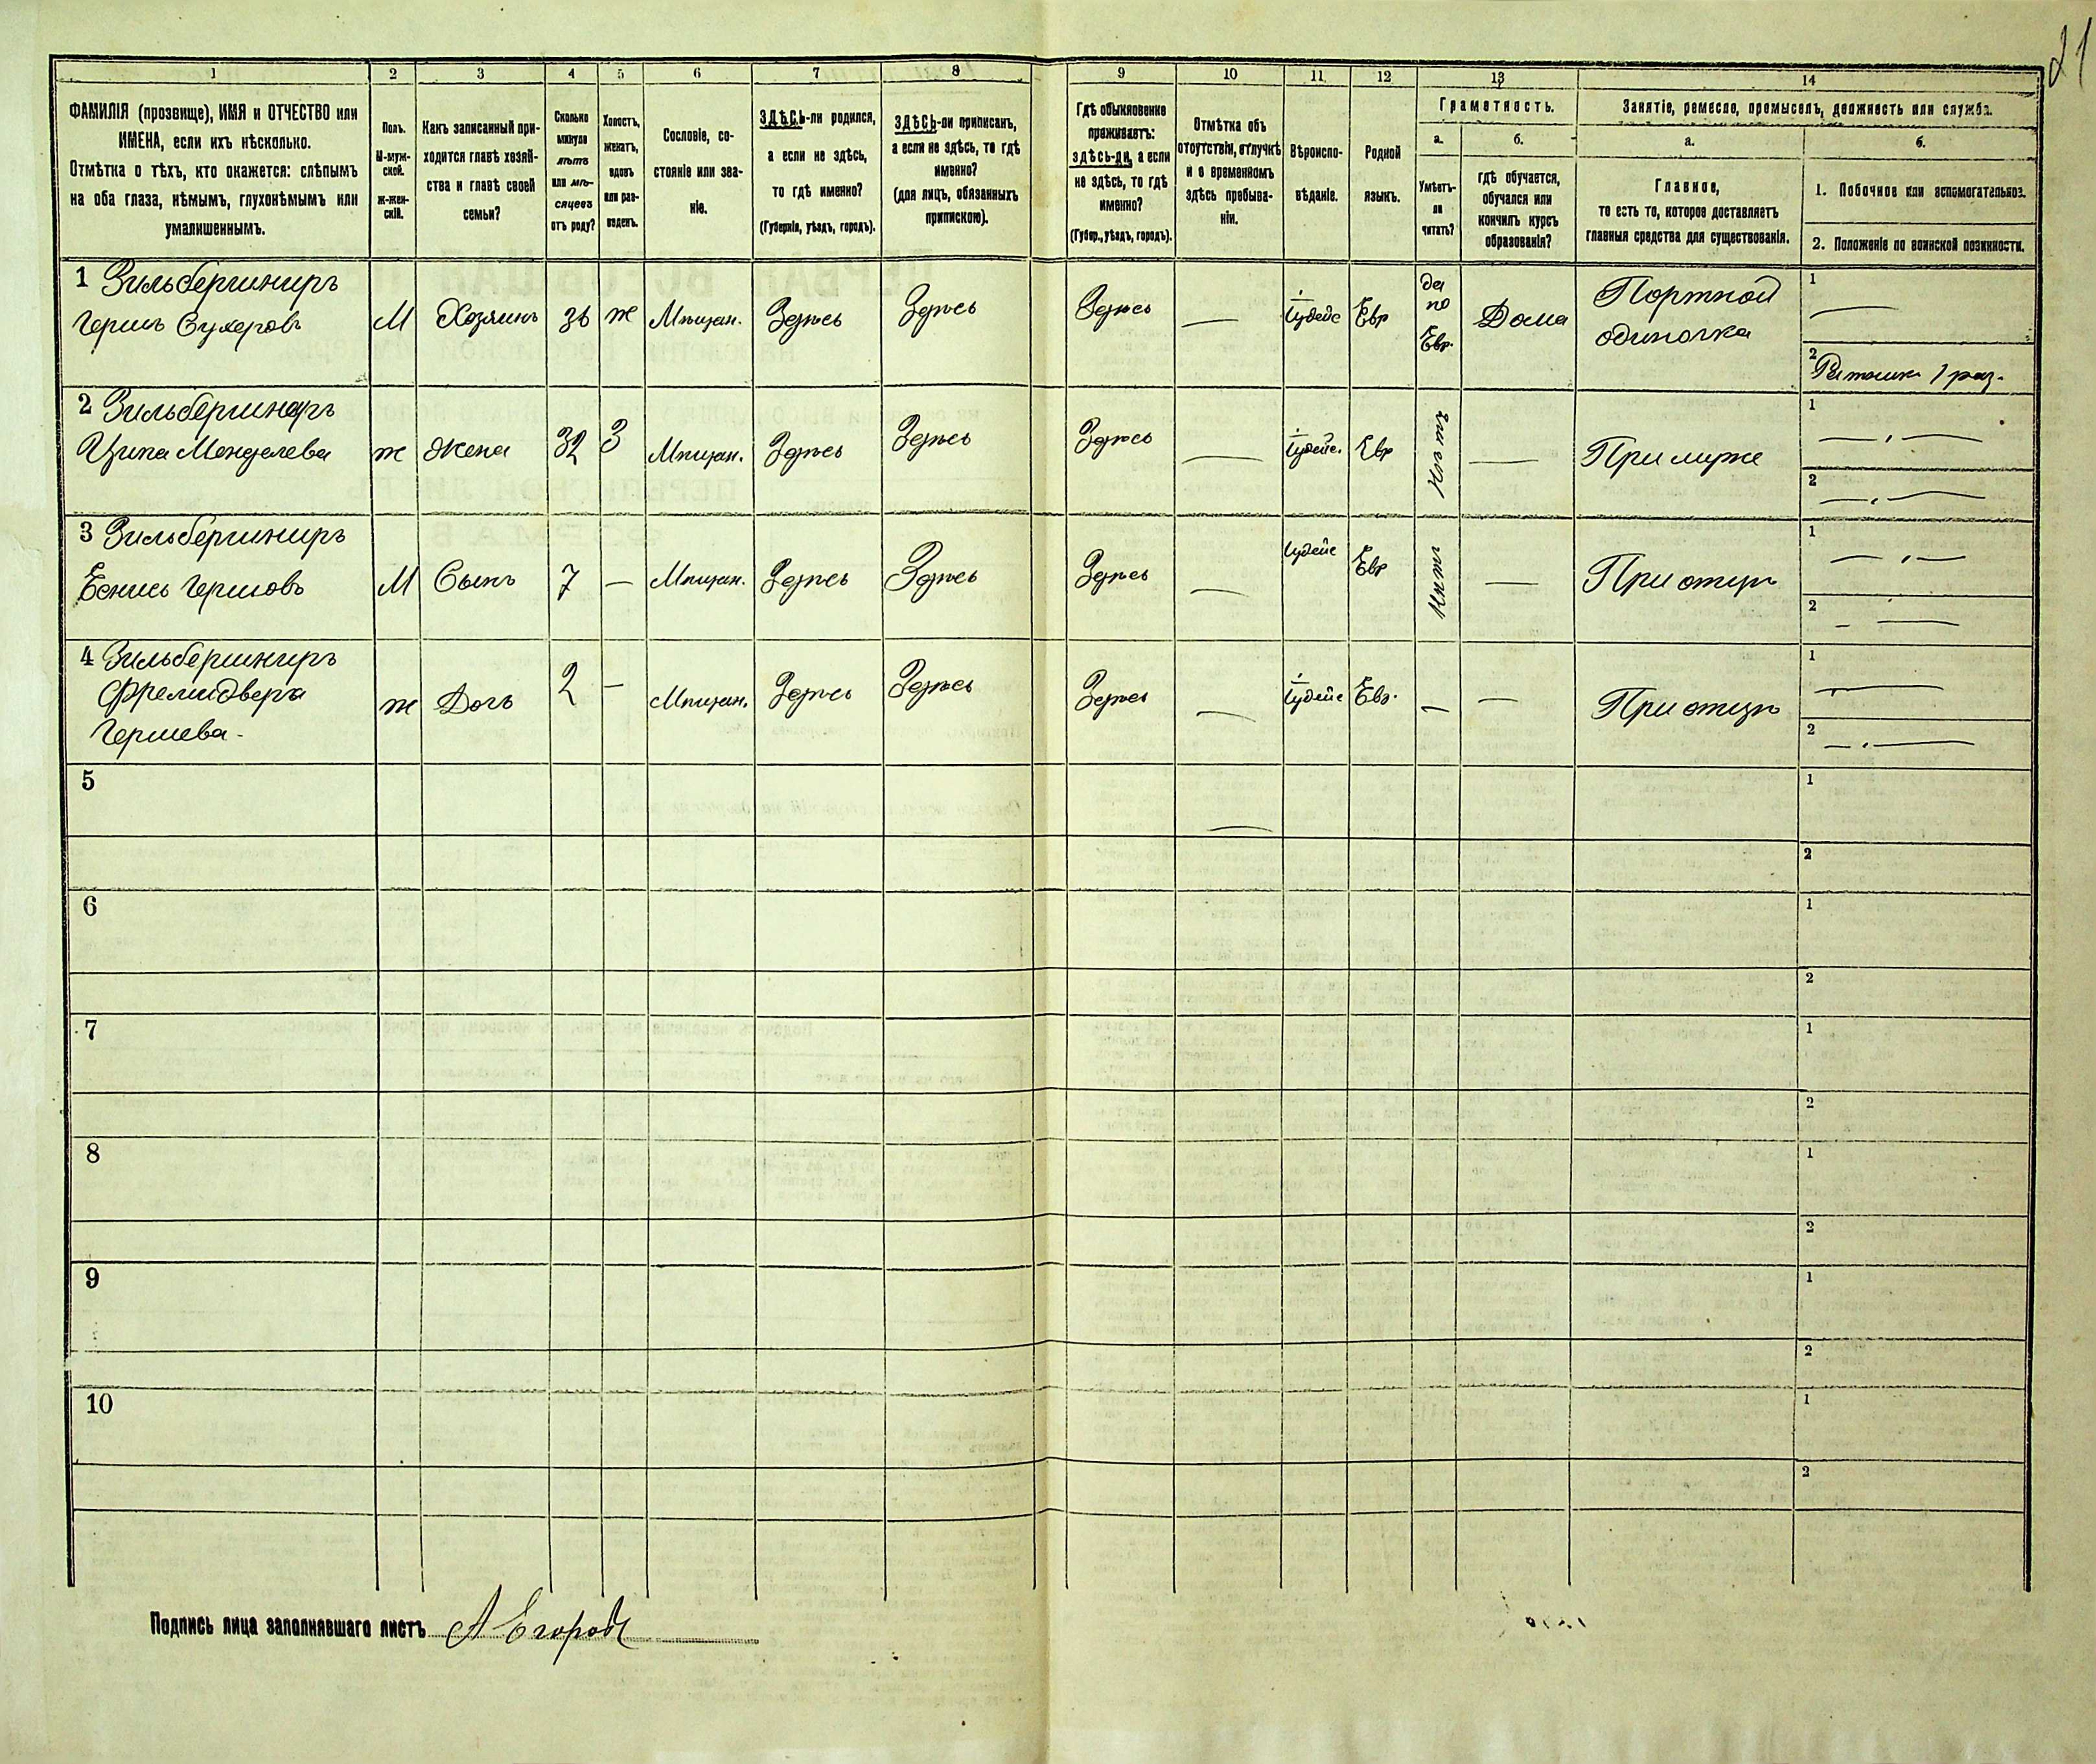 21
1
2
3
4
5
6
7
8
9
10
11
12
13
14
ФАМИЛІЯ (прозвище), ИМЯ и ОТЧЕСТВО или
ИМЕНА, если ихъ нѣсколько.
Отмѣтка о тѣхъ, кто окажется: слѣпымъ
на оба глаза, нѣмымъ, глухонѣмымъ или
умалишеннымъ.
Полъ.
М-муж-
ской.
ж-жен-
скій.
Какъ записанный при-
ходится главѣ хозяй-
ства и главѣ своей
семьи?
Сколько
минуло
лѣтъ
или мѣ-
сяцевъ
отъ роду?
Холостъ,
женатъ,
вдовъ
или раз-
веденъ.
Сословіе, со-
стояніе или зва-
ніе.
ЗДѢСЬ-ли родился,
а если не здѣсь,
то гдѣ именно?
(Губернія, уѣздъ, городъ).
ЗДѢСЬ-ли приписанъ,
а если не здѣсь, то гдѣ
именно?
(для лицъ, обязанныхъ
припискою).
Гдѣ обыкновенно
проживаетъ:
здѣсь-ли, а если
не здѣсь, то гдѣ
именно?
(Губер., уѣздъ, городъ).
Отмѣтка объ
отсутствіи, отлучкѣ
и о временномъ
здѣсь пребыва-
ніи.
Вѣроиспо-
вѣданіе.
Родной
языкъ.
Грамотность.
а.
Умѣетъ-
ли
читать?
б.
гдѣ обучается,
обучался или
кончилъ курсъ
образованія?
Занятіе, ремесло, промыселъ, должность или служба.
а.
Главное,
то есть то, которое доставляетъ
главныя средства для существованія.
б.
1. Побочное или вспомогательное.
2. Положеніе по воинской повинности.
1 Зильбершниръ
Гершъ Сухеровъ
М
Хозяинъ
36
ж
Мѣщан.
Здѣсь
Здѣсь
Здѣсь
—
Іудейс
Евр
да
по
Евр.
Дома
Портной
одиночка
1
—
2
Ратник 1 раз.
2 Зильбершниръ
Ципа Менделева
ж
Жена
32
З
Мѣщан.
Здѣсь
Здѣсь
Здѣсь
—
Іудейс.
Евр
Нѣтъ
—
При мужѣ
1
— „ —
2
— „ —
3 Зильбершниръ
Гершовъ
М
Сынъ
7
—
Мѣщан.
Здѣсь
Здѣсь
Здѣсь
—
Іудейс
Евр
Нѣтъ
—
При отцѣ
1
— „ —
2
— —
4 Зильбершниръ
Фрейдвера
Гершева -
ж
Дочь
2
—
Мѣщан.
Здѣсь
Здѣсь
Здѣсь
—
Іудейс
Евр.
—
—
При отцѣ
1
—
2
— „ —
5
—
1
2
6
1
2
7
1
2
8
1
2
9
1
2
10
1
2
Подпись лица заполнявшаго листъ А Егоровъ